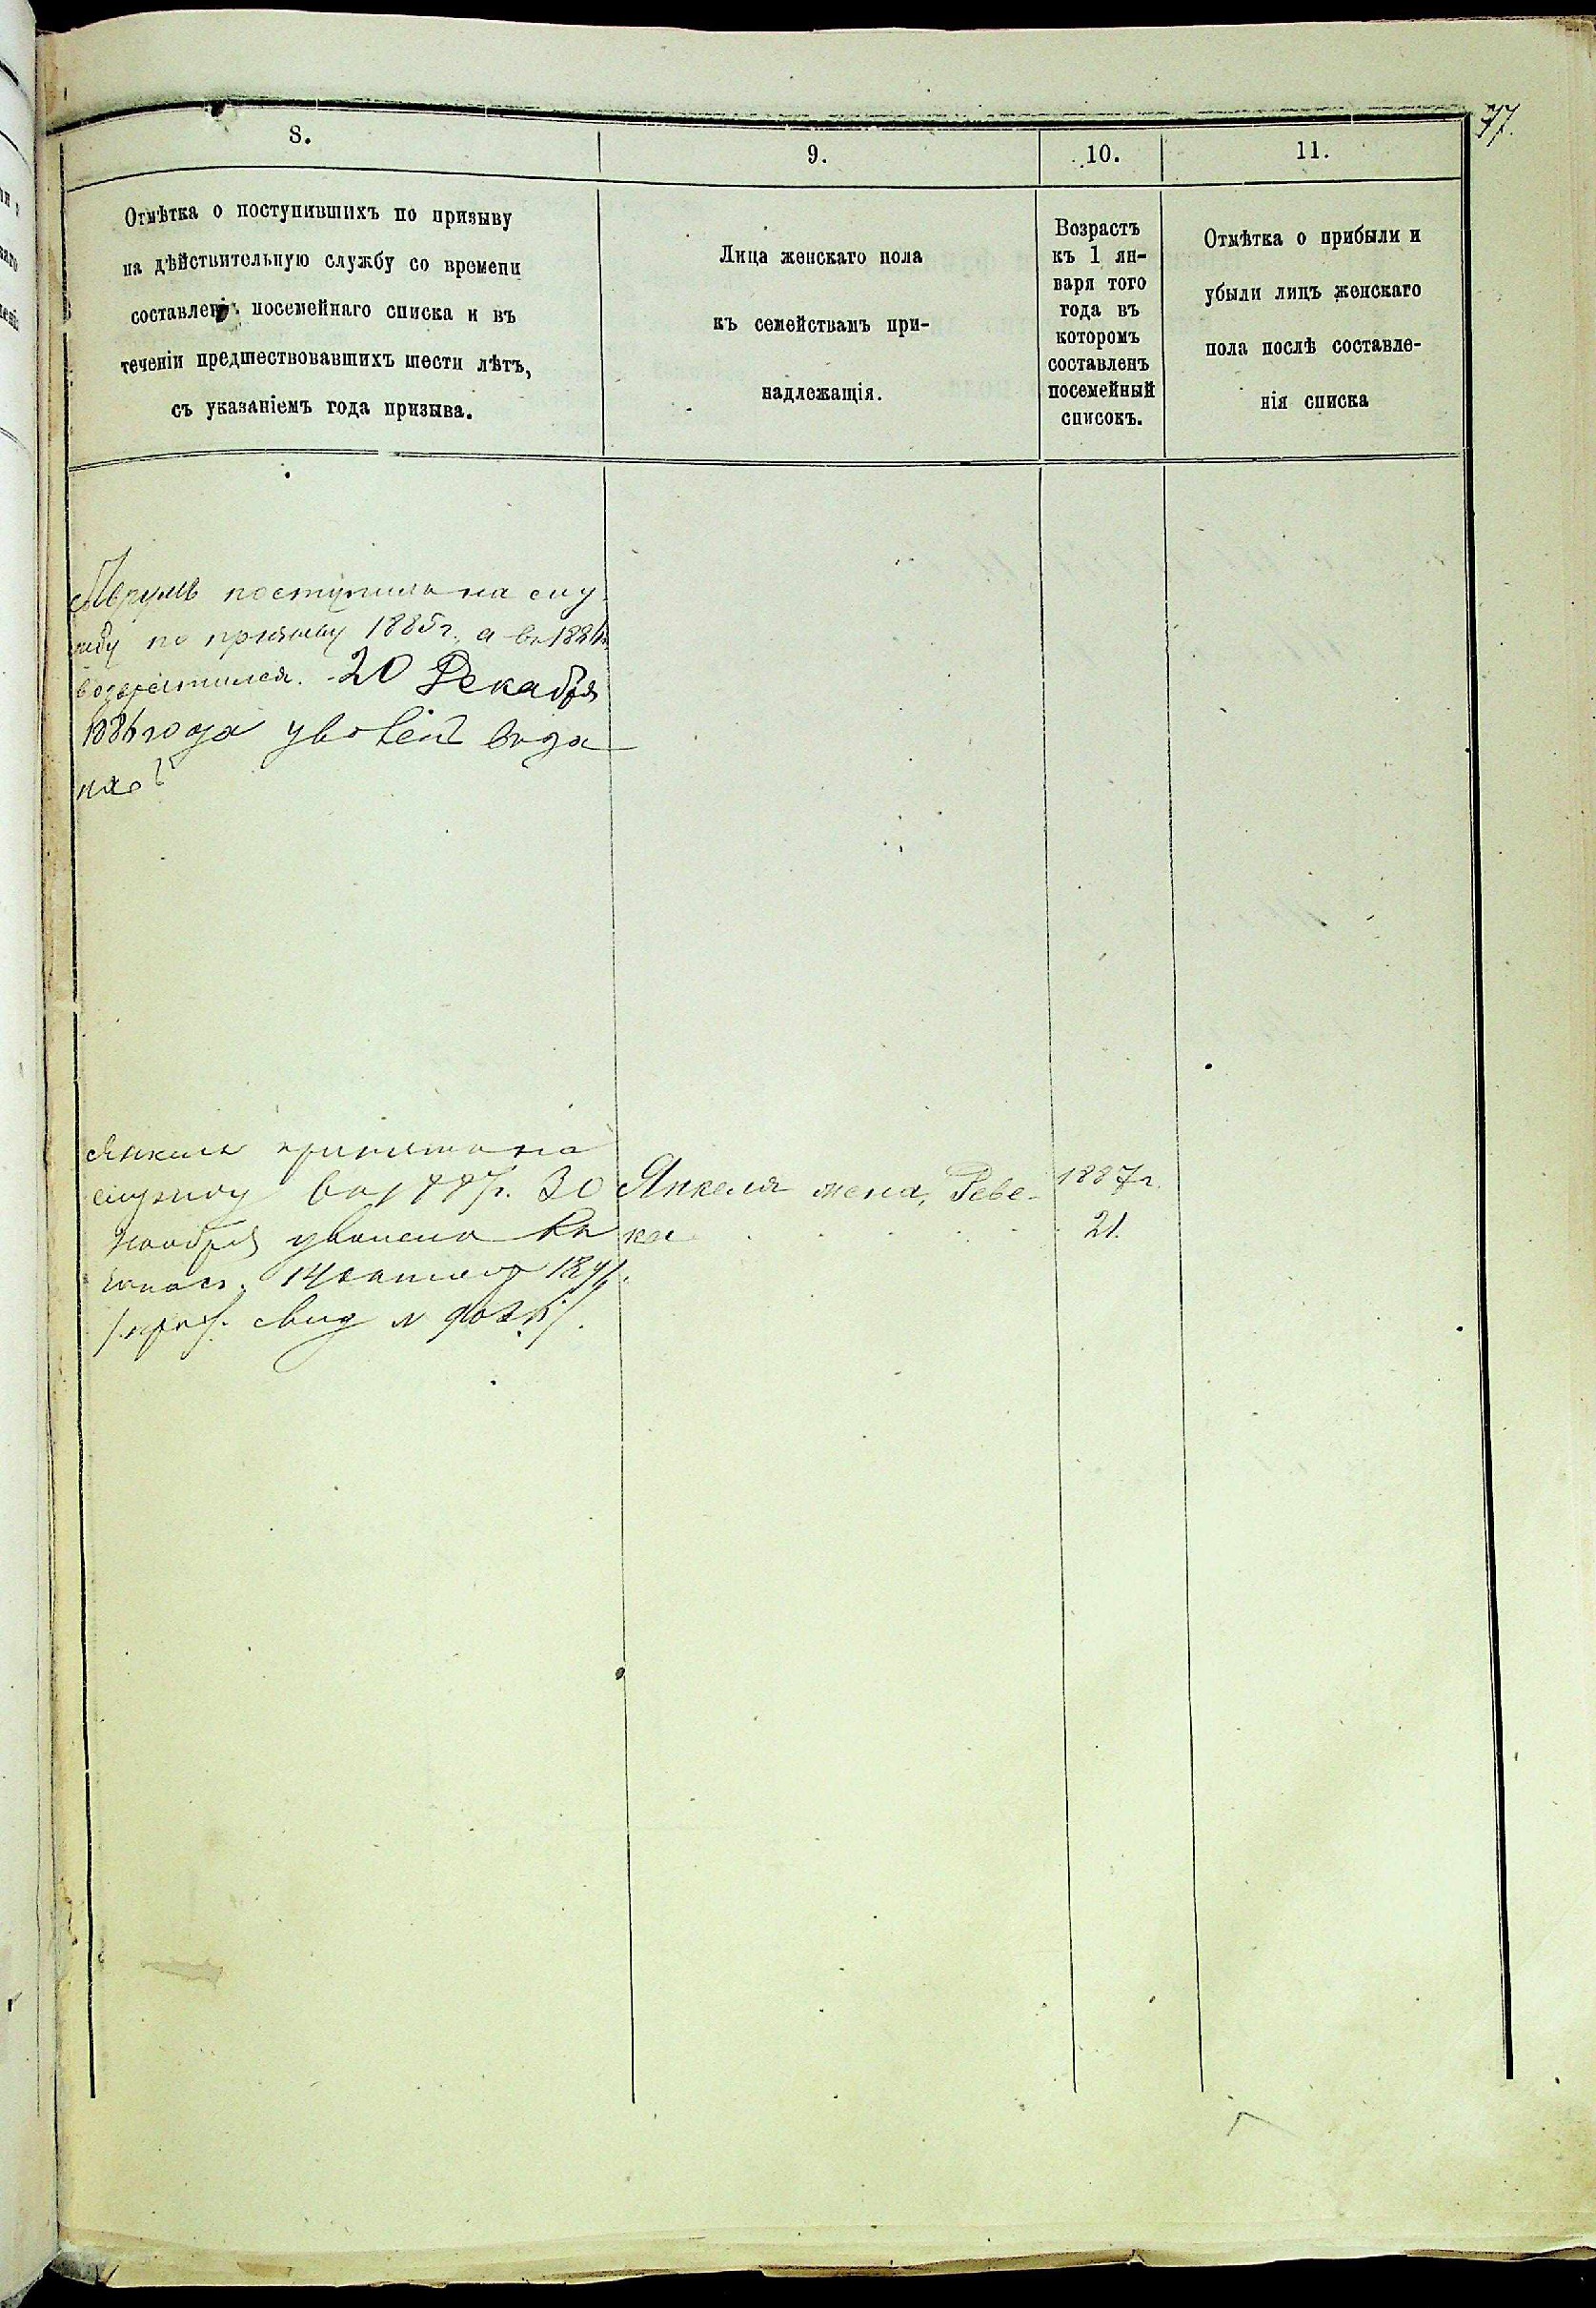 77.
8.
9.
10.
11.
Отмѣтка о поступившихъ по призыву
на дѣйствительную службу со времени
составленія посемейнаго списка и въ
теченіи предшествовавшихъ шести лѣтъ,
съ указаніемъ года призыва.
Лица женскаго пола
къ семействамъ при-
надлежащія.
Возрастъ
къ 1 ян-
варя того
года въ
которомъ
составленъ
посемейный
списокъ.
Отмѣтка о прибыли и
убыли лицъ женскаго
пола послѣ составле-
нія списка
Аврумъ поступилъ на слу
жбу по призыву 1885 г. а въ 1886 г.
возвратился. 20 Декабря
1886 года уволенъ въ за
пасъ
Янкель принятъ на
службу въ 1887 г. 30
Ноября уволенъ въ
запас. 14
свид №
Янкеля жена, Реве-
ка
1887 г.
21.